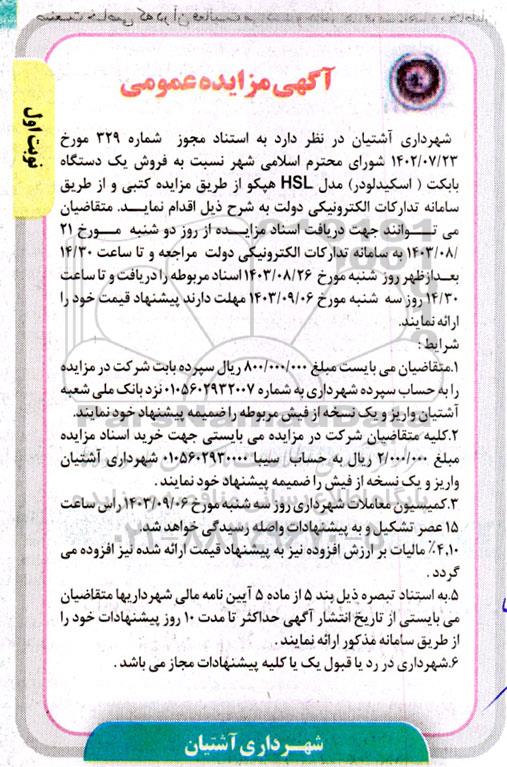 آگهی مزایده عمومی
نوبت اول
شهرداری آشتیان در نظر دارد به استناد مجوز شماره ۳۲۹ مورخ
۱۴۰۲/۰۷/۲۳ شورای محترم اسلامی شهر نسبت به فروش یک دستگاه
بابکت ( اسکیدلودر) مدل HSL هپکو از طریق مزایده کتبی و از طریق
سامانه تدارکات الکترونیکی دولت به شرح ذیل اقدام نمایــد. متقاضیان
می تــوانند جهت دریافت اسناد مزایــده از روز دو شنبه مــورخ ۲۱
/۱۴۰۳/۰۸ به سامانه تدارکات الکترونیکی دولت مراجعه و تا ساعت ۱۴/۳۰
بعدازظهر روز شنبه مورخ ۱۴۰۳/۰۸/۲۶ اسناد مربوطه را دریافت و تا ساعت
۱۴/۳۰ روز سه شنبه مورخ ۱۴۰۳/۰۹/۰۶ مهلت دارند پیشنهاد قیمت خود را
ارائه نمایند.
شرایط :
۱.متقاضیان می بایست مبلغ ۸۰۰/۰۰۰/۰۰۰ ریال سپرده بابت شرکت در مزایده
را به حساب سپرده شهرداری به شماره ۰۱۰۵۶۰۲۹۳۲۰۰۷ نزد بانک ملی شعبه
آشتیان واریز و یک نسخه از فیش مربوطه را ضمیمه پیشنهاد خود نمایند.
۲.کلیه متقاضیان شرکت در مزایده می بایستی جهت خرید اسناد مزایده
مبلغ ۲/۰۰۰/۰۰۰ ریال به حساب سیبا ۰۱۰۵۶۰۲۹۳۰۰۰۰ شهرداری آشتیان
واریز و یک نسخه از فیش را ضمیمه پیشنهاد خود نمایند .
۳.کمیسیون معاملات شهرداری روز سه شنبه مورخ ۱۴۰۳/۰۹/۰۶ رأس ساعت
۱۵ عصر تشکیل و به پیشنهادات واصله رسیدگی خواهد شد.
۴.۱۰٪ مالیات بر ارزش افزوده نیز به پیشنهاد قیمت ارائه شده نیز افزوده می
گردد .
۵.به استناد تبصره ذیل بند ۵ از ماده ۵ آیین نامه مالی شهرداریها متقاضیان
می بایستی از تاریخ انتشار آگهی حداکثر تا مدت ۱۰ روز پیشنهادات خود را
از طریق سامانه مذکور ارائه نمایند .
۶.شهرداری در رد یا قبول یک یا کلیه پیشنهادات مجاز می باشد .
شهــرداری آشتیان